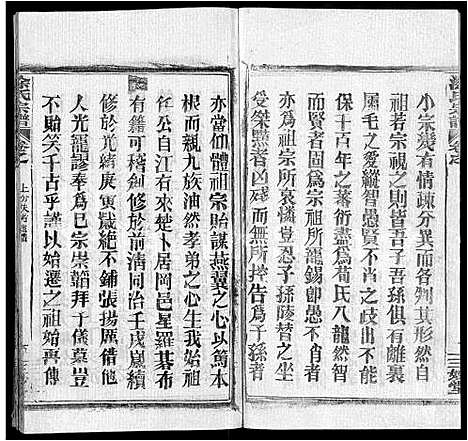 小宗幾有情疏分異而各判其形然自
祖若宗視之則吾子吾孫俱有離裏
屬毛之愛縱智愚賢不肖之歧出不能
保十百年之蕃衍盡爲荀氏八龍然智
者賢者固爲宗祖所寵錫即愚不肖
亦爲宗祖之所哀憐豈忍子孫蹂躪
受桀黠者凶殘而無所控告爲子孫者
亦當仰體祖宗貽謀燕翼之心以篤本
根而親九族油然孝弟之心生我始祖
任公自江右來楚卜居岡邑星羅碁布
有籍可稽剏修於前清同治壬戌嵗續
修於光緒庚寅嵗絶不鋪張揚厲借他
人光龍謬奉爲已宗崇韜拜子儀墓豈
不貽笑千古乎謹以始遷之祖始再傳
涂氏宗譜
卷首
上分